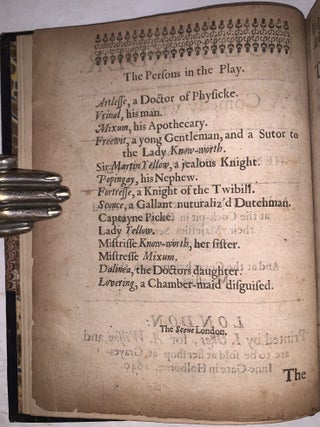 The Persons in the Play.
Artlesse, a Doctor of Physicke.
Vrinal, his man.
Mixum, his Apothecary.
Freewit, a yong Gentleman, and a Sutor to
the Lady Know-worth.
Sir Martin Yellow, a jealous Knight.
Popingay, his Nephew.
Fortresse, a Knight of the Twibill.
a Gallant naturaliz'd Dutchman.
Captayne Picke.
Lady Yellow.
Mistrisse Know-worth, her sister.
Mistresse Mixum.
Dalinea, the Doctors daughter.
Lovering, a Chamber-maid disguised.
The Scene London.
The